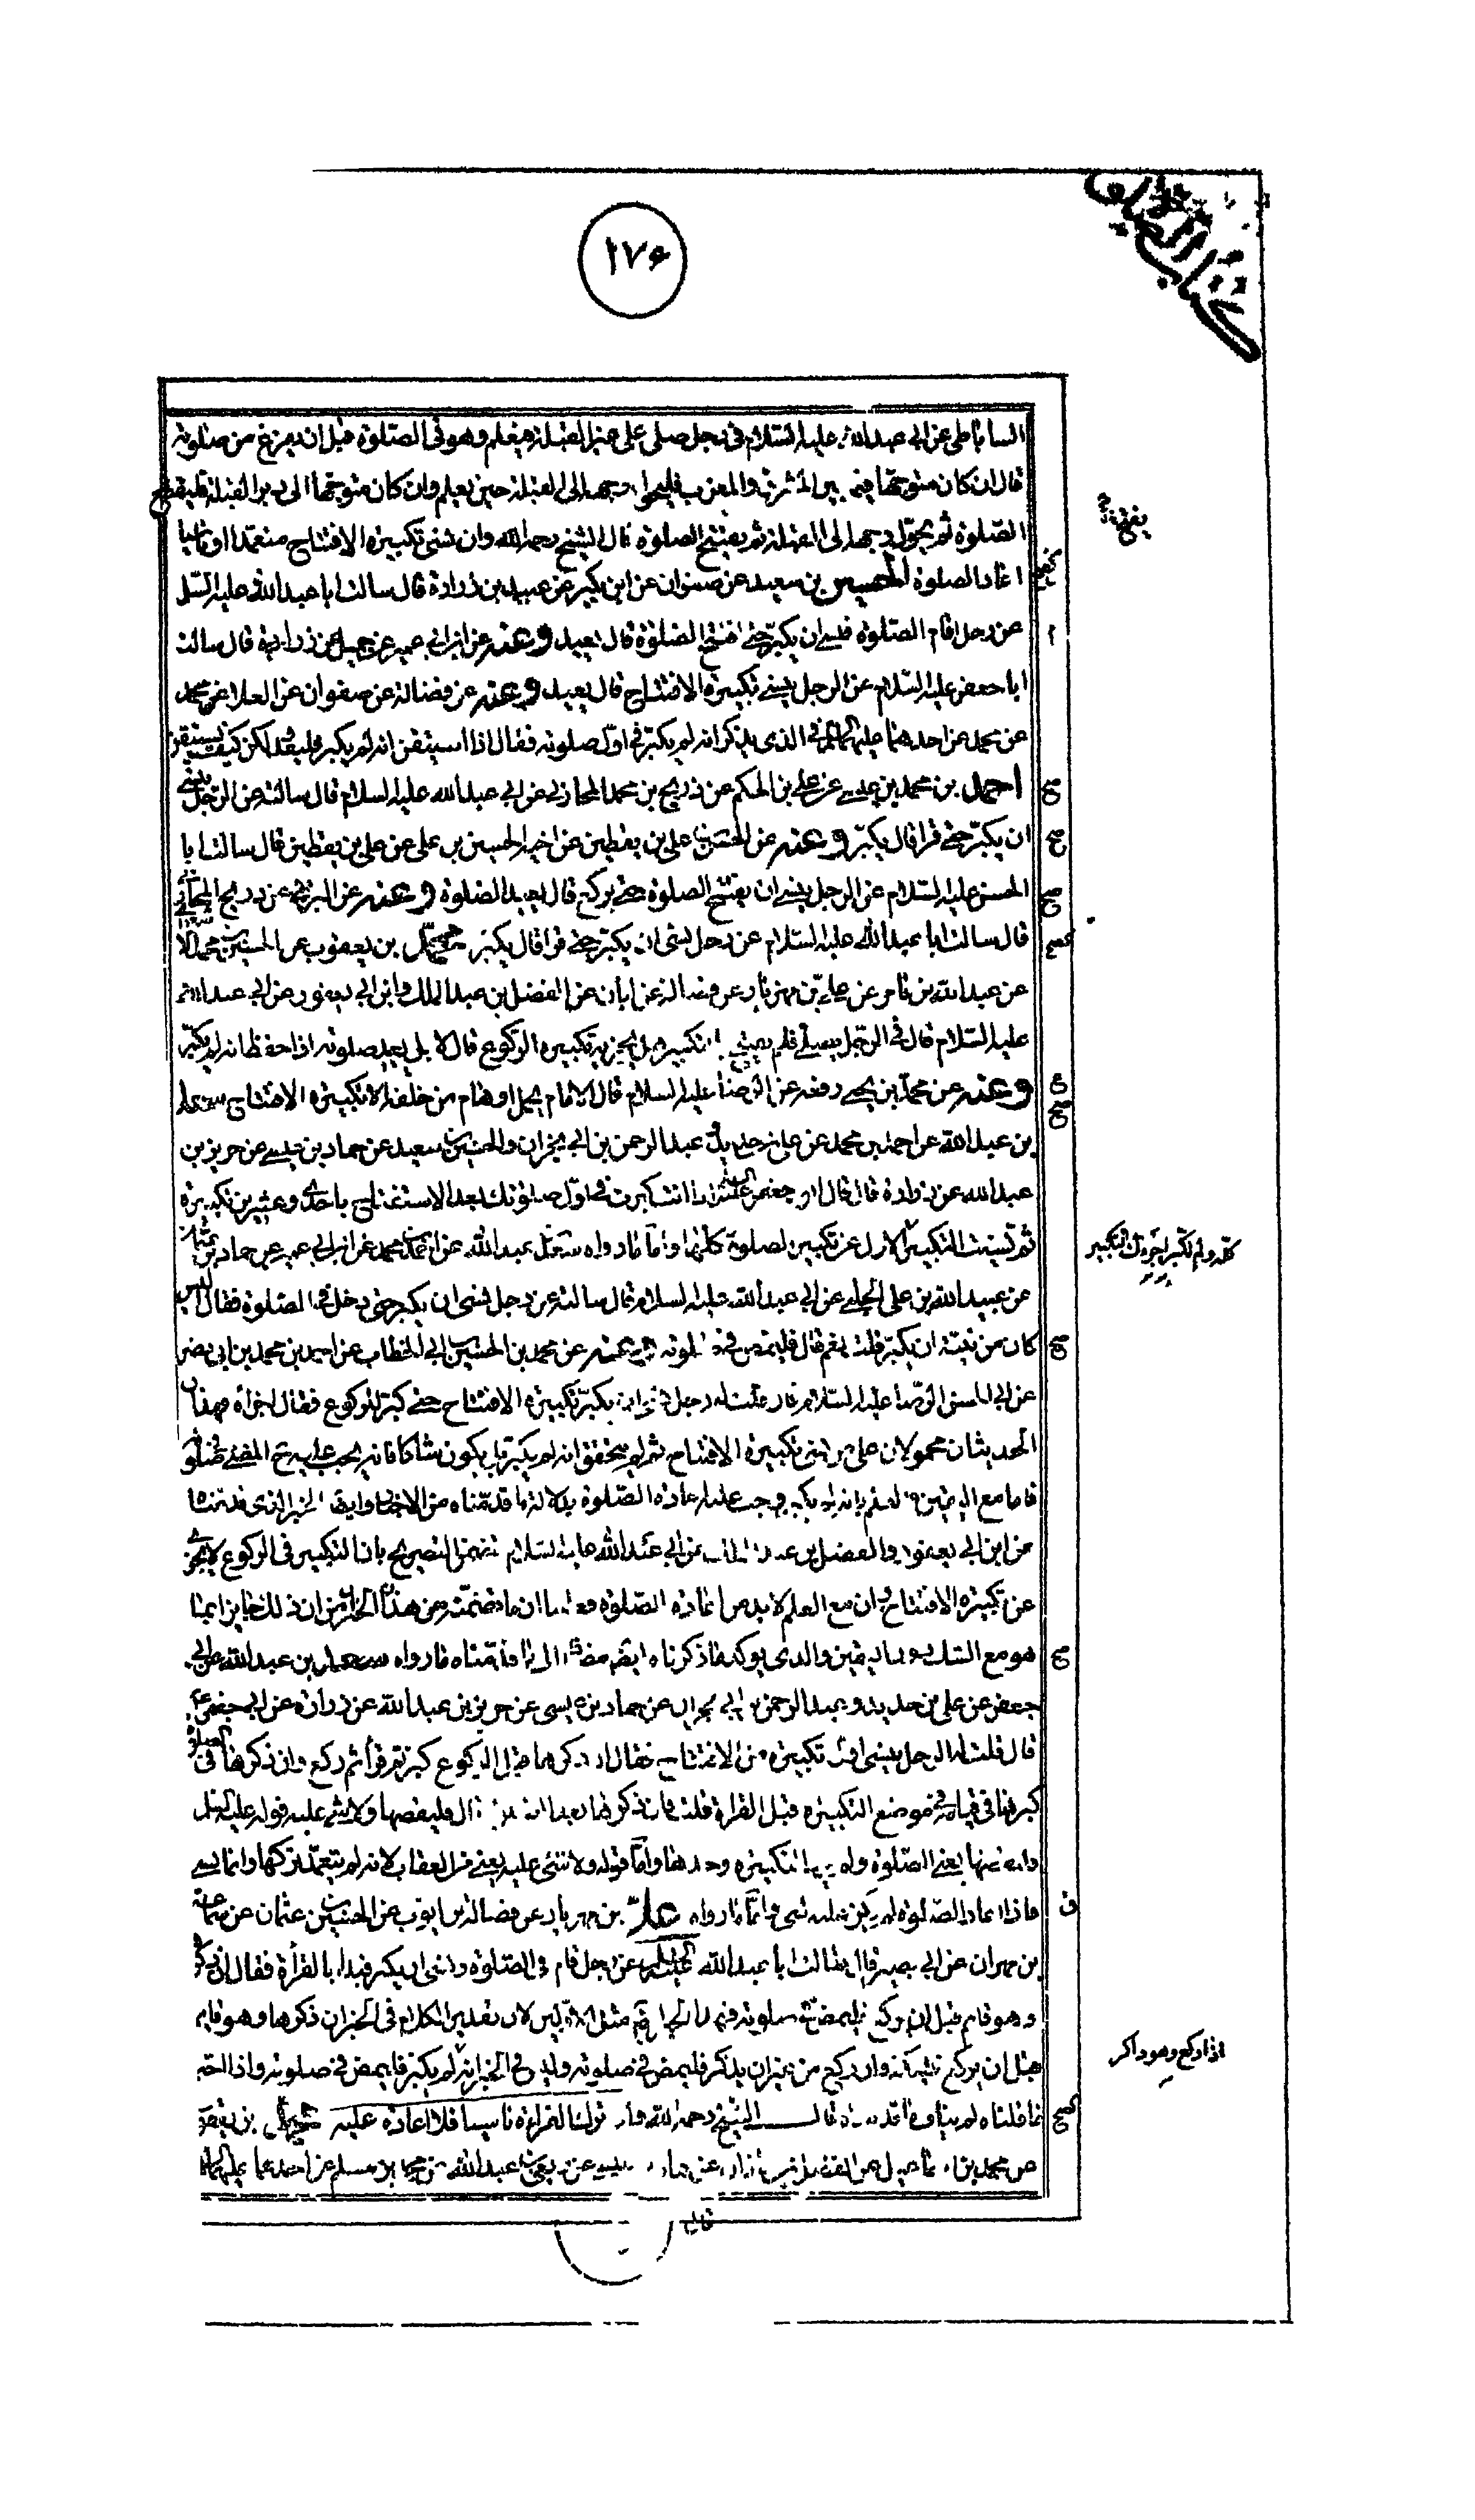 كتاب الصلوة
١٧۶
الساباطى عن ابى عبدالله عليه السلام فى رجل صلى على غير القبلة فيعلم وهو فى الصلوة قبل ان يفرغ من صلوته
قال ان كان متوجها فيما بين المشرق والمغرب فليحول وجهه الى القبلة حين يعلم وان كان متوجها الى دبر القبلة فليقطع
الصلوة ثم يحول وجهه الى القبلة ثم يفتتح الصلوة قال الشيخ رحمه الله وان نسى تكبيرة الافتتاح متعمدا او ناسيا
اعاد الصلوة الحسين بن سعيد عن صفوان عن ابن بكير عن عبيد بن زرارة قال سالت ابا عبدالله عليه السلم
عن رجل اقام الصلوة فنسى ان يكبر حتى افتتح الصلوة قال يعيد وعنه عن ابن ابى عمير عن جميل عن زرارة قال سالت
ابا جعفر عليه السلام عن الرجل ينسى تكبيرة الافتتاح قال يعيد وعنه عن فضالة عن صفوان عن العلا عن محمد
عن محمد عن احدهما عليهما السلم فى الذى يذكر انه لم يكبر فى اول صلوته فقال اذا استيقن انه لم يكبر فليعد ولكن كيف يستيقن
احمد بن محمد بن عيسى عن على بن الحكم عن ذريح بن محمد المحاربى عن ابى عبدالله عليه السلام قال سالته عن الرجل ينسى
ان يكبر حتى قرا قال يكبر وعنه عن الحسن بن على بن يقطين عن اخيه الحسين بن على عن على بن يقطين قال سالت ابا
الحسن عليه السلام عن الرجل ينسى ان يفتتح الصلوة حتى يركع قال يعيد الصلوة وعنه عن البرقى عن ذريح المحاربى
قال سالت ابا عبدالله عليه السلام عن رجل نسى ان يكبر حتى قرا قال يكبر محمد بن يعقوب عن الحسين بن محمد الا
عن عبدالله بن عامر عن على بن مهزيار عن فضالة عن ابان عن الفضل بن عبدالملك وابن ابى يعفور عن ابى عبدالله
عليه السلام قال فى الرجل يصلى فلم يفتتح بالتكبير هل يجزيه تكبيرة الركوع قال لا بل يعيد صلوته اذا حفظ انه لم يكبر
وعنه عن محمد بن يحيى رفعه عن الرضا عليه السلام قال الامام يحمل اوهام من خلفه الا تكبيرة الافتتاح سعد
بن عبدالله عن احمد بن محمد عن على بن حديد وعبدالرحمن بن ابى نجران والحسين بن سعيد عن حماد بن عيسى عن حريز بن
عبدالله عن زرارة قال قال ابو جعفر عليه السلم اذا انت كبرت فى اول صلوتك بعد الاستفتاح باحدى وعشرين تكبيرة
ثم نسيت التكبير كله ولم تكبر اجزءك التكبير الاول عن تكبير الصلوة كلها واما ما رواه سعد بن عبدالله عن احمد بن محمد عن ابن ابى عمير عن حماد بن عثمان
عن عبيدالله بن على الحلبى عن ابى عبدالله عليه السلام قال سالته عن رجل نسى ان يكبر حتى دخل فى الصلوة فقال اليس
كان من نيته ان يكبر قلت نعم قال فليمض فى صلوته وعنه عن محمد بن الحسين بن ابى الخطاب عن احمد بن محمد بن ابى نصر
عن ابى الحسن الرضا عليه السلام قال قلت له رجل نسى ان يكبر تكبيرة الافتتاح حتى كبر للركوع فقال اجزاه فهذان
الحديثان محمولان على من نسى تكبيرة الافتتاح ثم لم يتحقق انه لم يكبر بل يكون شاكا فانه يجب عليه ح المضى فى صلوته
فاما مع اليقين والعلم بانه لم يكبر وجب عليه اعادة الصلوة بدلالة ما قدمناه من الاخبار وايضا الخبر الذى قدمناه
عن ابن ابى يعفور والفضل بن عبدالملك عن ابى عبدالله عليه السلام تضمن التصريح بان التكبير فى الركوع لا يجزى
عن تكبيرة الافتتاح وان مع العلم لابد من اعادة الصلوة فعلمنا ان ما تضمنه من هذا الخبر من ان ذلك جايز انما
هو مع الشك دون اليقين والذى يوكد ما ذكرناه ايضا مضافا الى ما قدمناه ما رواه سعد بن عبدالله عن ابى
جعفر عن على بن حديد وعبدالرحمن بن ابى نجران عن حماد بن عيسى عن حريز بن عبدالله عن زرارة عن ابى جعفر ع
قال قلت له الرجل ينسى اول تكبيرة من الافتتاح فقال ان ذكرها قبل الركوع كبر ثم قرأ ثم ركع وان ذكرها فى الصلوة
كبرها فى قيامه فى موضع التكبيرة قبل القراءة قلت فان ذكرها بعد الصلوة قال فليقضها ولا شىء عليه قوله عليه السلم
فليقضها يعنى الصلوة ولم يرد التكبيرة وحدها واما قوله ولا شىء عليه يعنى من العقاب لانه لم يتعمد تركها وانما نسى
فاذا اعاد الصلوة لم يكن عليه شىء واما ما رواه على بن مهزيار عن فضالة بن ايوب عن الحسين بن عثمان عن سماعة
بن مهران عن ابى بصير قال سالت ابا عبدالله عليه السلم عن رجل قام فى الصلوة ونسى ان يكبر فبدا بالقرأة فقال ان ذكرها
وهو قايم قبل ان يركع فليكبر وان ركع فليمض فى صلوته فهذا الخبر ايضا مثل الاول ليس لان تقدير الكلام فى الخبر ان ذكرها وهو قايم
قبل ان يركع فليكبر وان ركع من غير ان يذكر فليمض فى صلوته وليس فى الخبر انه لم يكبر فليمض فى صلوته واذا احتمل
ما قلناه لم يناف ما قدمناه قال الشيخ رحمه الله فان ترك القراءة ناسيا فلا اعادة عليه محمد بن يعقوب
عن محمد بن اسماعيل عن الفضل بن شاذان عن حماد بن عيسى عن ربعى بن عبدالله عن محمد بن مسلم عن احدهما عليهما السلم
قال
كله ولم تكبر اجزءك التكبير
اذا ركع وهو ذاكر